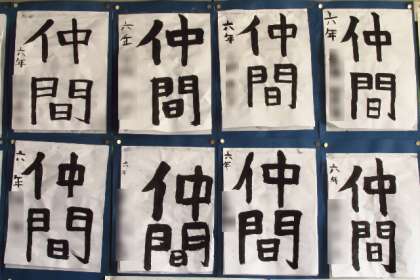 仲間
六年
仲間
六年
仲間
六年
仲間
六年
仲間
六年
仲間
六年
仲間
六年
仲間
六年